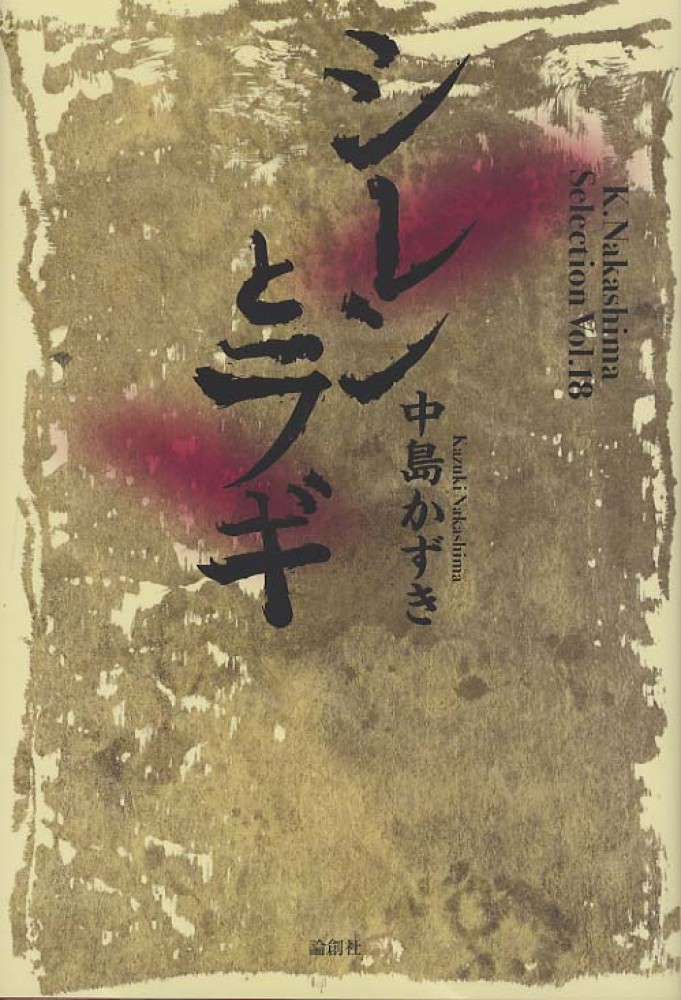 K. Nakashima
Selection Vol. 18
シレン
とラギ
中島かずき
Kazuki Nakashima
論創社